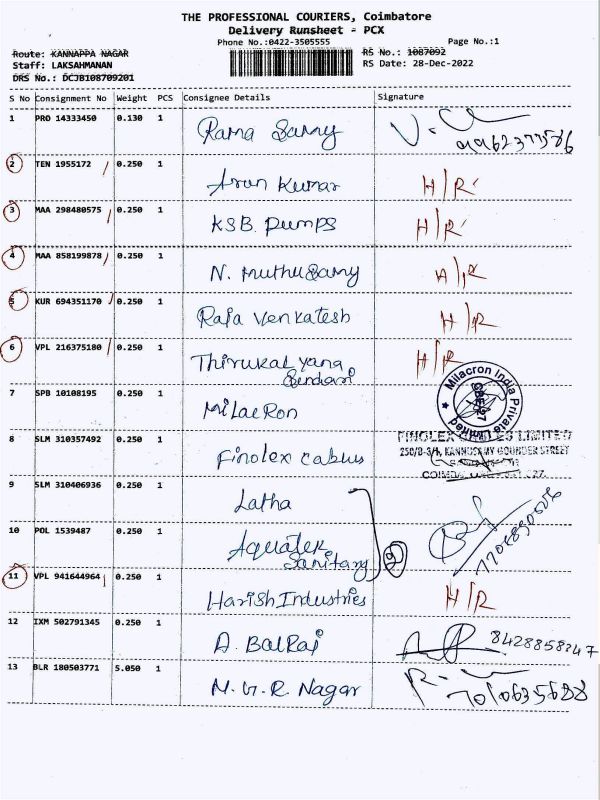 THE PROFESSIONAL COURIERS, Coimbatore
Delivery Runsheet - PCX
Phone No.:0422-3505555 Page No.:1
Route: KANNAPPA NAGAR RS No.: 1087092
Staff: LAKSAHMANAN RS Date: 28-Dec-2022
DRS No.: DCJB108709201
S No Consignment No Weight PCS Consignee Details Signature
1 PRO 14333450 0.130 1 Rama Samy
2 TEN 1955172 0.250 1 Arun Kumar H/R
3 MAA 298480575 0.250 1 KSB. Pumps H/R
4 MAA 858199878 0.250 1 N. Muthusamy H/R
5 KUR 694351170 0.250 1 Raja Venkatesh H/R
6 VPL 216375180 0.250 1 Thirukalyana H/R
Milacron India Private Limited
7 SPB 10108195 0.250 1 MilacRon
FINOLEX CABLES LIMITED
8 SLM 310357492 0.250 1 Finolex Cables
250/B-3/1, KANNUSAMY GOUNDER STREET
9 SLM 310406936 0.250 1 Latha
10 POL 1539487 0.250 1 Aquatek
Sanitary
11 VPL 941644964 0.250 1 Harish Industries H/R
12 IXM 502791345 0.250 1 A. BalRaj 8428858247
13 BLR 180503771 5.050 1 M.G.R. Nagar 7010635688